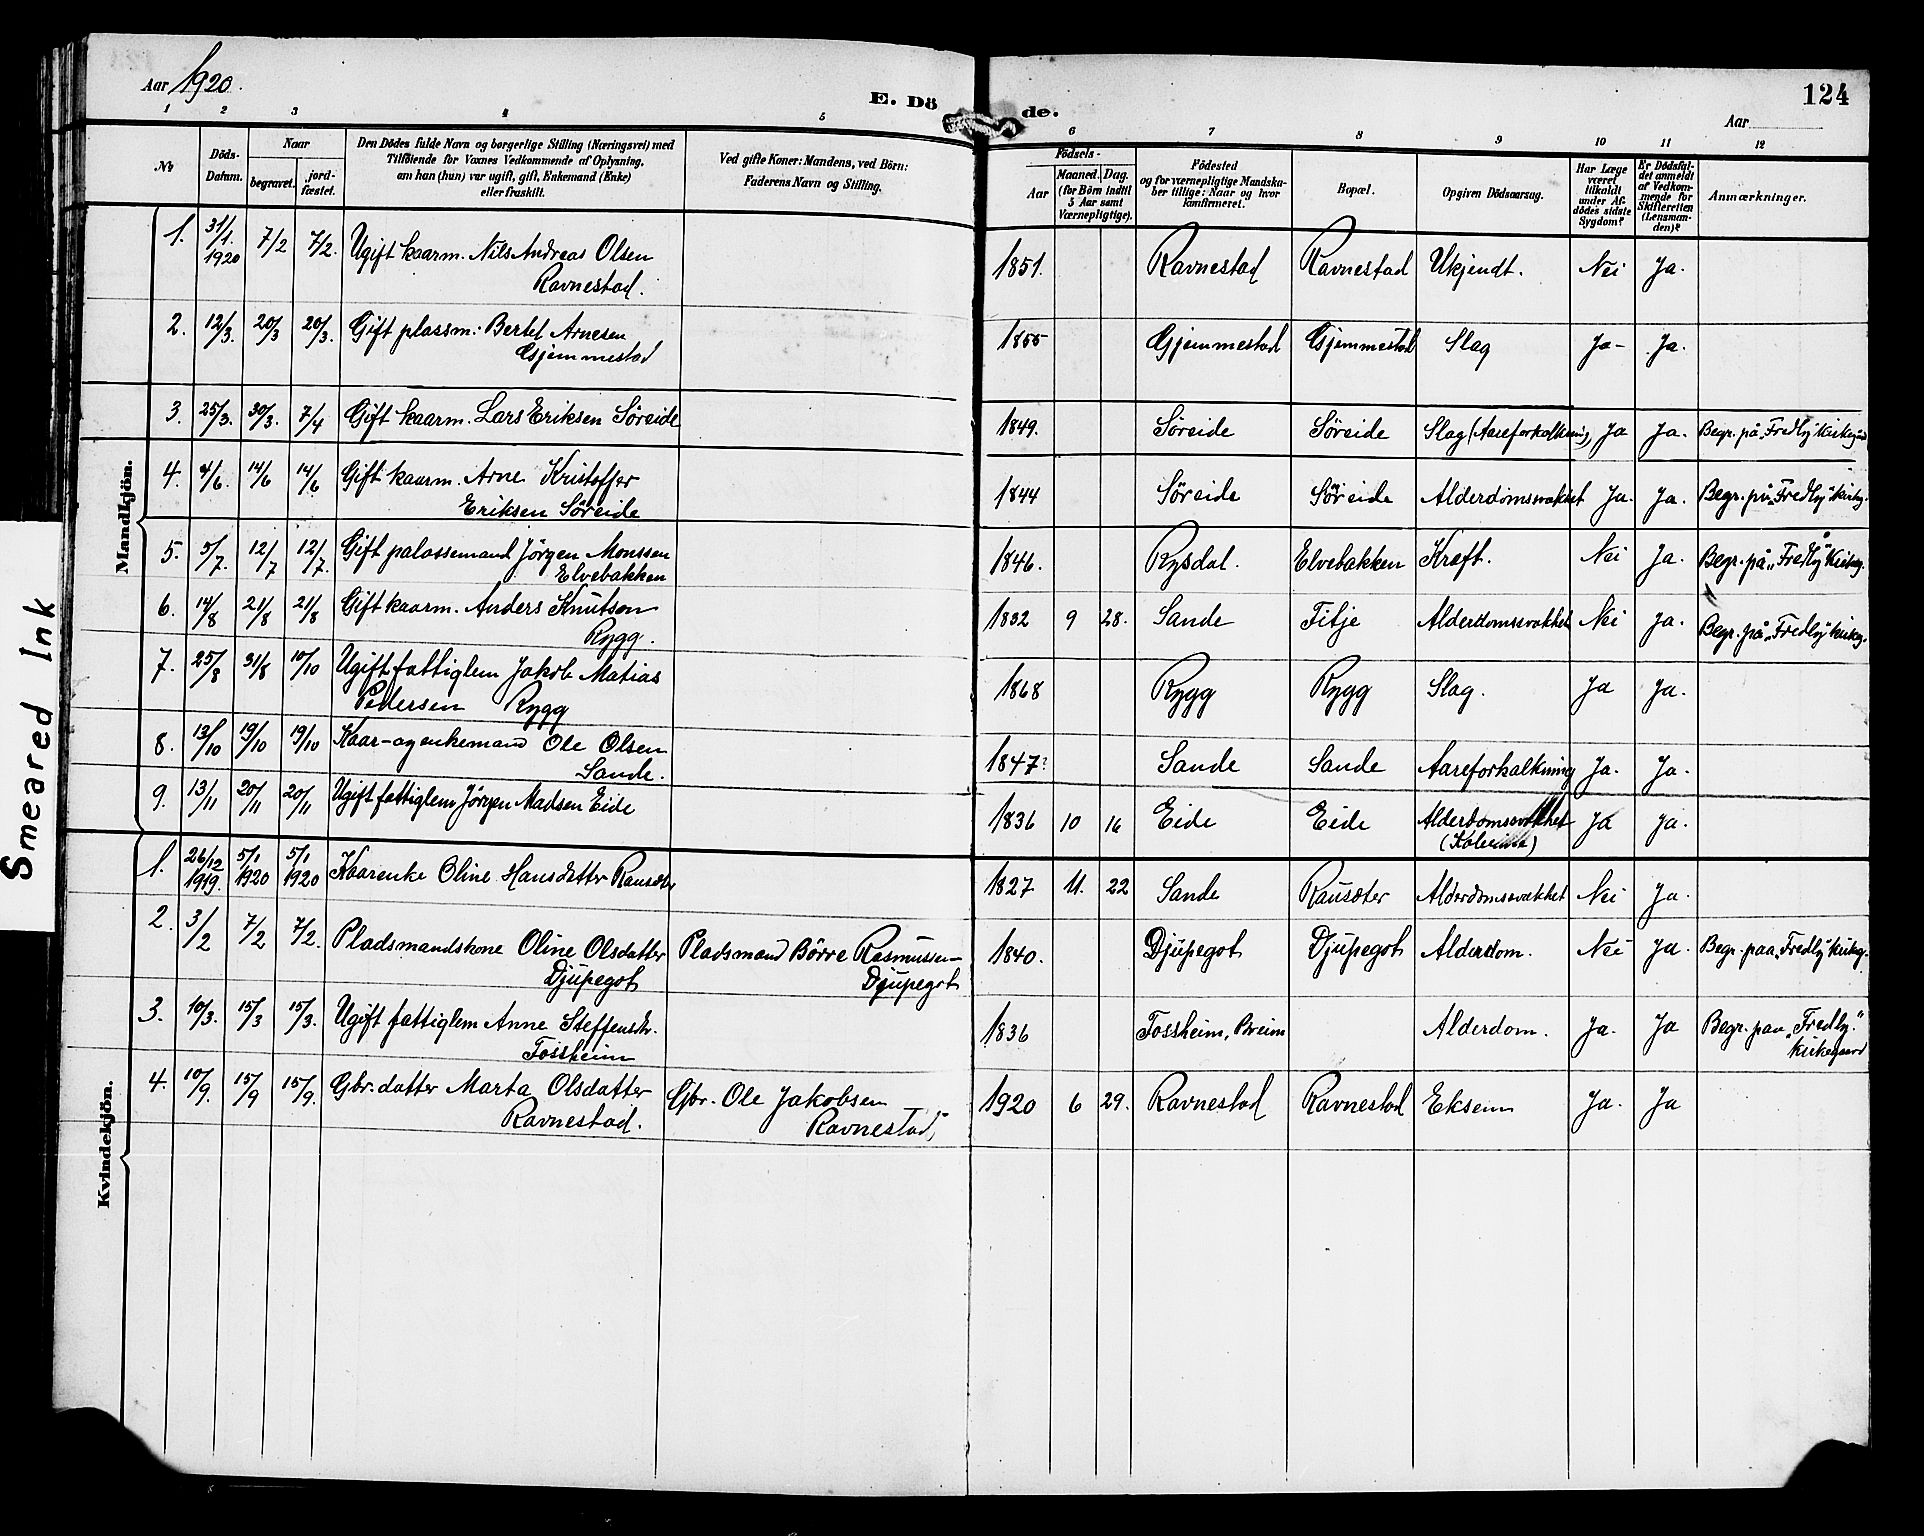 Aar 1920.
E. Dö
de.
124
Aar
1 2 3 4 5 6 7 8 9 10 11 12
No
Döds-Datum.
Naar
begravet.
jord-fæstet.
Den Dödes fulde Navn og borgerlige Stilling (Næringsvei) med
Tilföiende for Voxnes Vedkommende af Oplysning,
om han (hun) var ugift, gift, Enkemand (Enke)
eller fraskilt.
Ved gifte Koner: Mandens, ved Börn:
Faderens Navn og Stilling.
Födsels-
Aar
Maaned. Dag.
(for Börn indtil
5 Aar samt
Værnepligtige).
Födested
og for værnepligtige Mandska-
ber tillige: Naar og hvor
konfirmeret.
Bopæl.
Opgiven Dödsaarsag.
Har Læge
været
tilkaldt
under Af-
dödes sidste
Sygdom?
Er Dödsfal-
det anmeldt
af Vedkom-
mende for
Skifteretten
(Lensman-
den)?
Anmærkninger.
Mandkjön.
1. 31/1. 1920 7/2 7/2. Ugift kaarm. Nils Andreas Olsen
Ravnestad.
1851. Ravnestad Ravnestad Ukjendt. Nei Ja.
2. 12/3. 20/3 20/3. Gift plassm: Bertel Arnesen
Gjemmestad
1855 Gjemmestad Gjemmestad Slag Ja- Ja.
3. 25/3. 30/3. 7/4 Gift kaarm. Lars Eriksen Söreide
1849. Söreide Söreide Slag (Aareforkalkning) Ja Ja. Begr. på "Fredly" kirkegård
4. 4/6. 14/6 14/6 Gift kaarm. Arne Kristoffer
Eriksen Söreide
1844 Söreide Söreide Alderdomssvakhet Ja. Ja. Begr. på "Fredly" kirkeg.
5. 5/7. 12/7 12/7. Gift palassemand Jörgen Monssen
Elvebakken
1846. Rysdal. Elvebakken Kræft. Nei Ja. Begr. på "Fredly" kirkeg.
6. 14/8 21/8 21/8 Gift kaarm. Anders Knutson
Rygg.
1832 9 28. Sande Fitje Alderdomssvakhet Nei Ja. Begr. på "Fredly" kirkeg.
7. 25/8 31/8 10/10 Ugift fattiglem Jakob Matias
Pedersen Rygg
1868 Rygg Rygg Slag. Ja Ja.
8. 13/10 19/10 19/10 Kaar-og enkemand Ole Olsen
Sande.
1847? Sande Sande Aareforkalkning Ja. Ja.
9. 13/11 20/11 20/11 Ugift fattiglem Jörgen Madsen Eide
1836 10 16 Eide Eide Alderdomssvakhet Ja Ja.
Kvindekjön.
1. 26/12 1919. 5/1 1920 5/1 1920 Kaarenke Oline Hansdatter Rausæter
1827 11. 22 Sande Rausæter Alderdomssvakhet Nei Ja.
2. 3/2 7/2 7/2. Pladsmandskone Oline Olsdatter
Djupegot
Pladsmand Börre Rasmussen
Djupegot
1840. Djupegot Djupegot Alderdom. Nei Ja. Begr. paa "Fredly" kirkeg.
3. 10/3. 15/3 15/3. Ugift fattiglem Anne Steffensdtr.
Fossheim
1836 Fossheim, Breim Alderdom. Ja. Ja Begr. paa "Fredly"
kirkegaard
4. 10/9. 15/9 15/9. Gbr. datter Marta Olsdatter
Ravnestad.
Gbr. Ole Jakobsen
Ravnestad,
1920 6 29. Ravnestad Ravnestad Eksem Ja. Ja
Smeared Ink